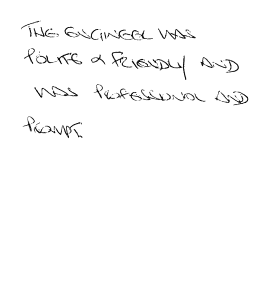 THE ENGINEER WAS
POLITE & FRIENDLY AND
WAS PROFESSIONAL AND
PROMPT.